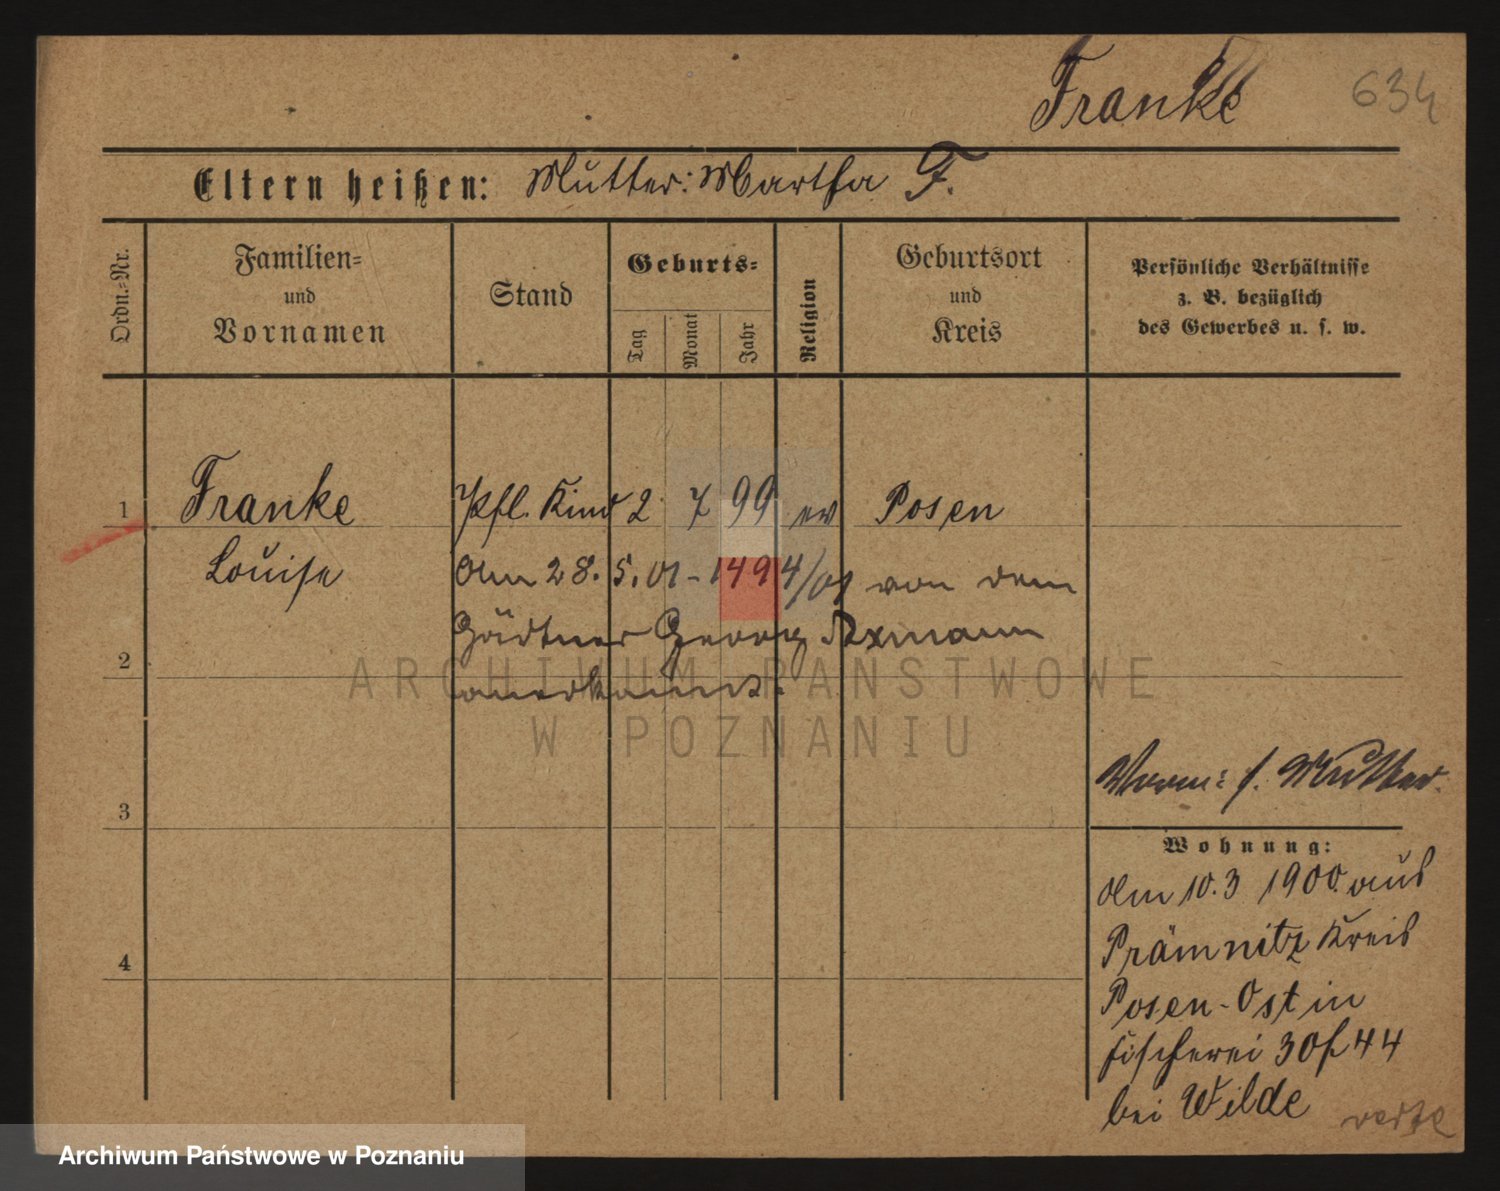 Franke
634
Eltern heißen: Mutter: Martha F.
Ordn.-Nr.
Familien-
und
Vornamen
Stand
Geburts-
Tag
Monat
Jahr
Religion
Geburtsort
und
Kreis
Persönliche Verhältnisse
z. B. bezüglich
des Gewerbes u. s. w.
1 Franke Pfl. Kind 2 7 99 ev Posen
Louise Am 28. 5. 01 - 1494/01 von dem
Gärtner Georg Axmann
2
anerkannt.
ARCHIWUM PAŃSTWOWE
W POZNANIU
3
4
Vorm: s. Mutter.
Wohnung:
Am 10.3 1900 aus
Prämnitz Kreis
Posen-Ost in
Fischerei 30 44
bei Wilde
verte
Archiwum Państwowe w Poznaniu